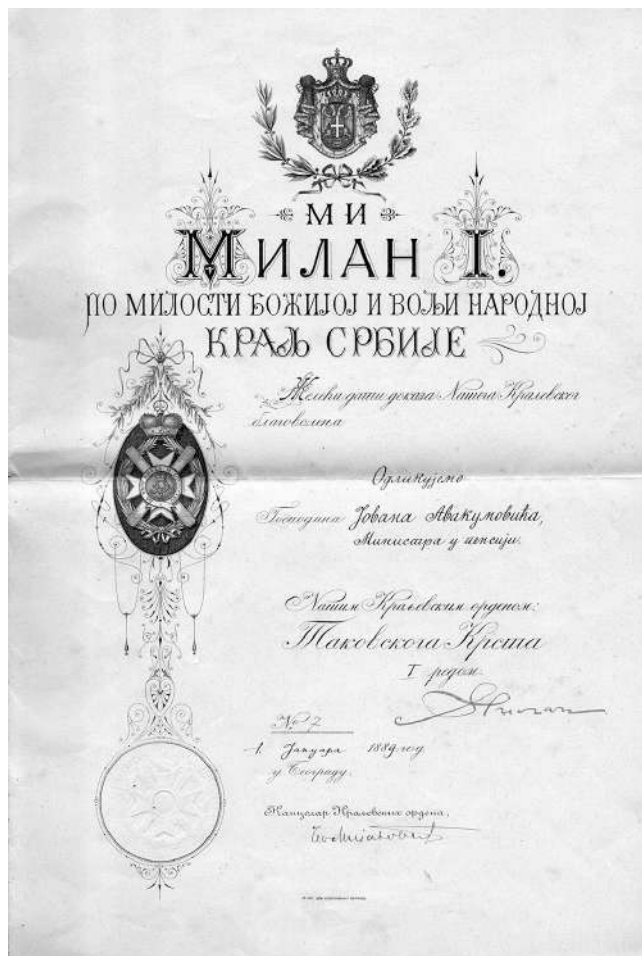 МИ
МИЛАН I.
ПО МИЛОСТИ БОЖИЈОЈ И ВОЉИ НАРОДНОЈ
КРАЉ СРБИЈЕ
Желећи дати доказа Нашега Краљевског
благовољена
Одликујемо
Господина Јована Авакумовића,
Министра у пензији.
Нашим Краљевским орденом:
Таковскога Крста
I редом.
Милан
№ 7
1. Јануара 1889 год.
у Београду.
Канцелар Краљевских ордена,